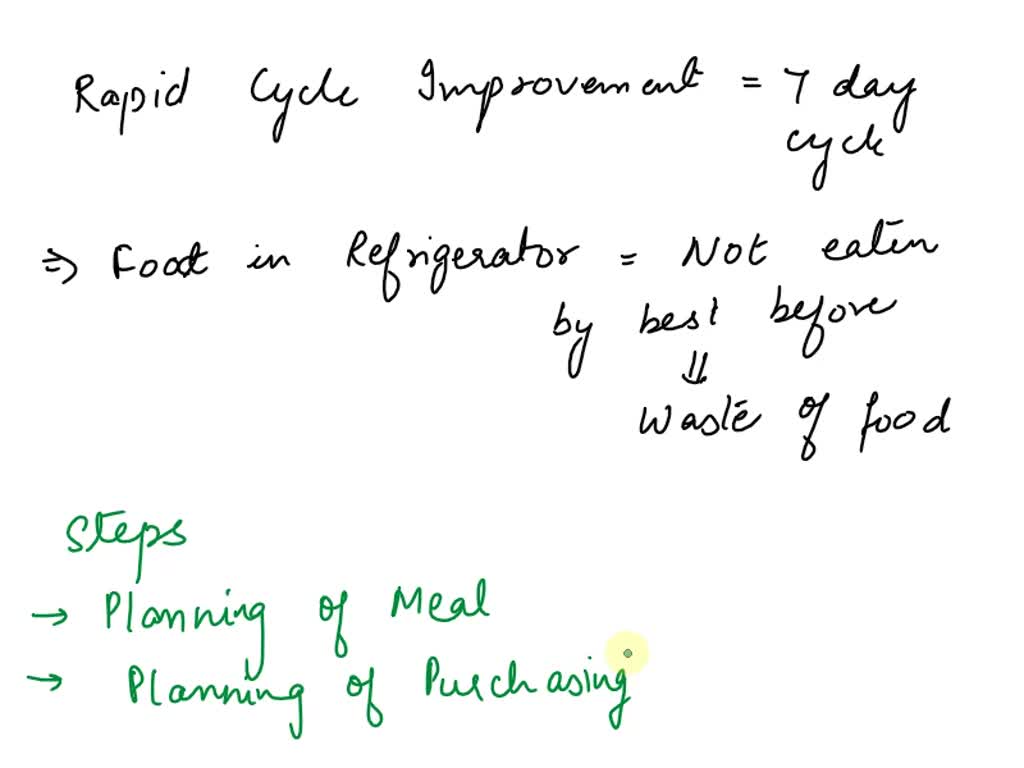 Rapid Cycle Improvement = 7 day
cycle
⇒ Food in Refrigerator = Not eaten
by best before
⇓
Waste of food
Steps
→ Planning of Meal
→ Planning of Purchasing